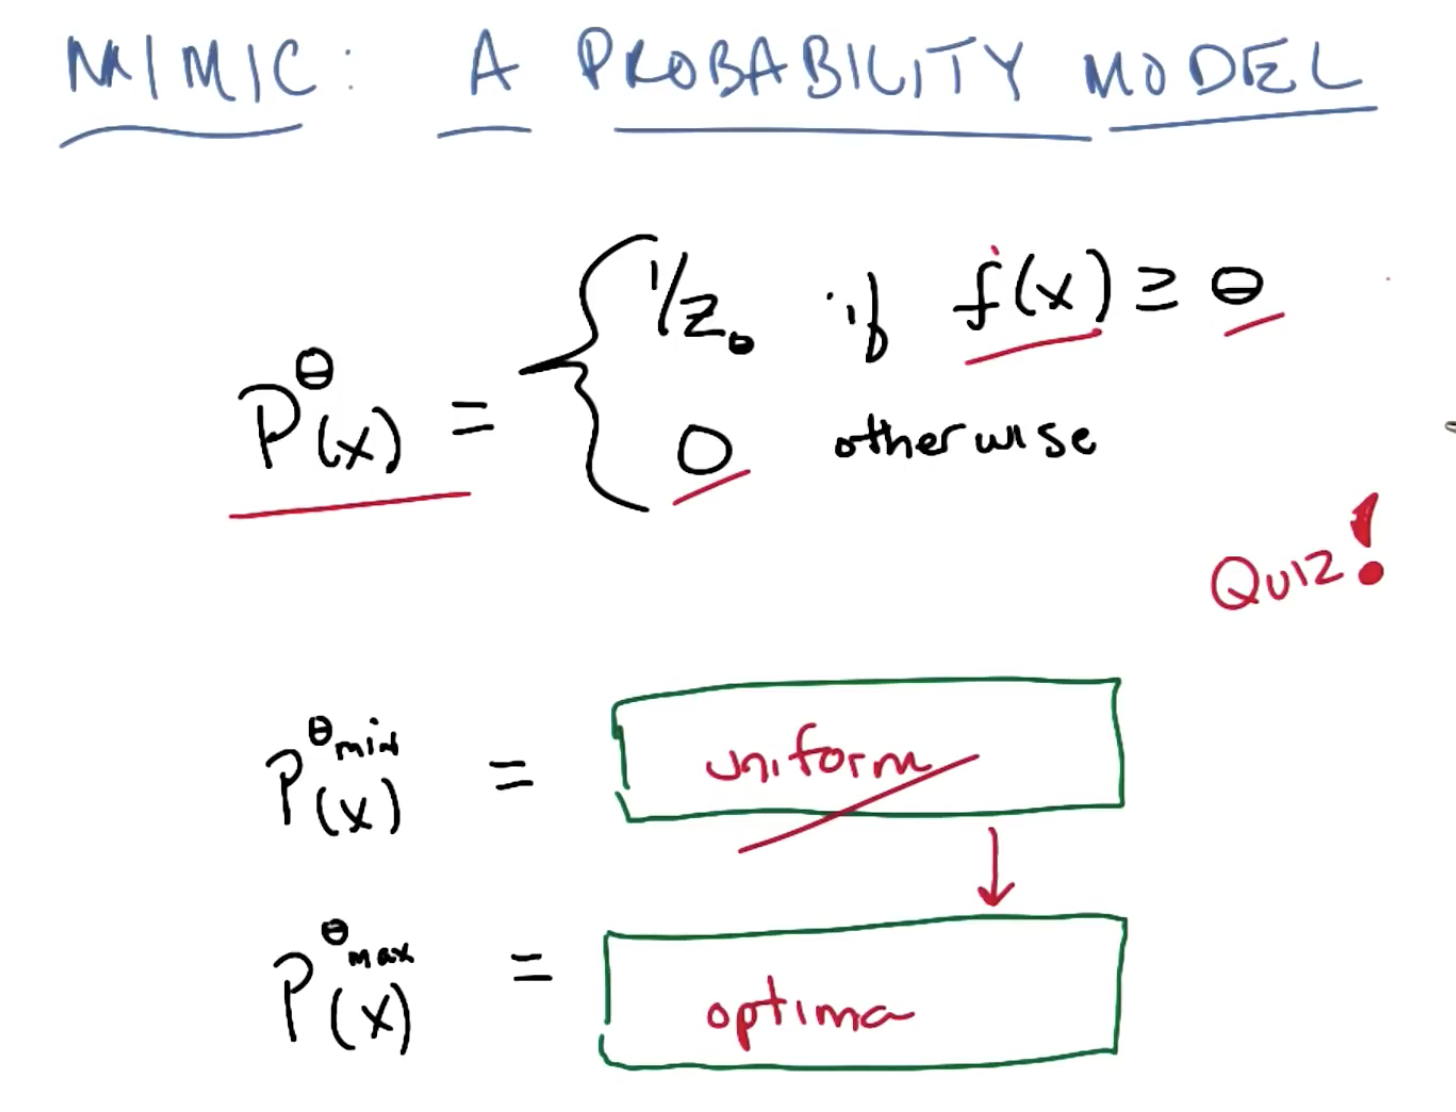 MIMIC: A PROBABILITY MODEL
P^θ(x) = { 1/Z_θ if f(x) ≥ θ
0 otherwise
Quiz!
P^θmin(x) = uniform
P^θmax(x) = optima